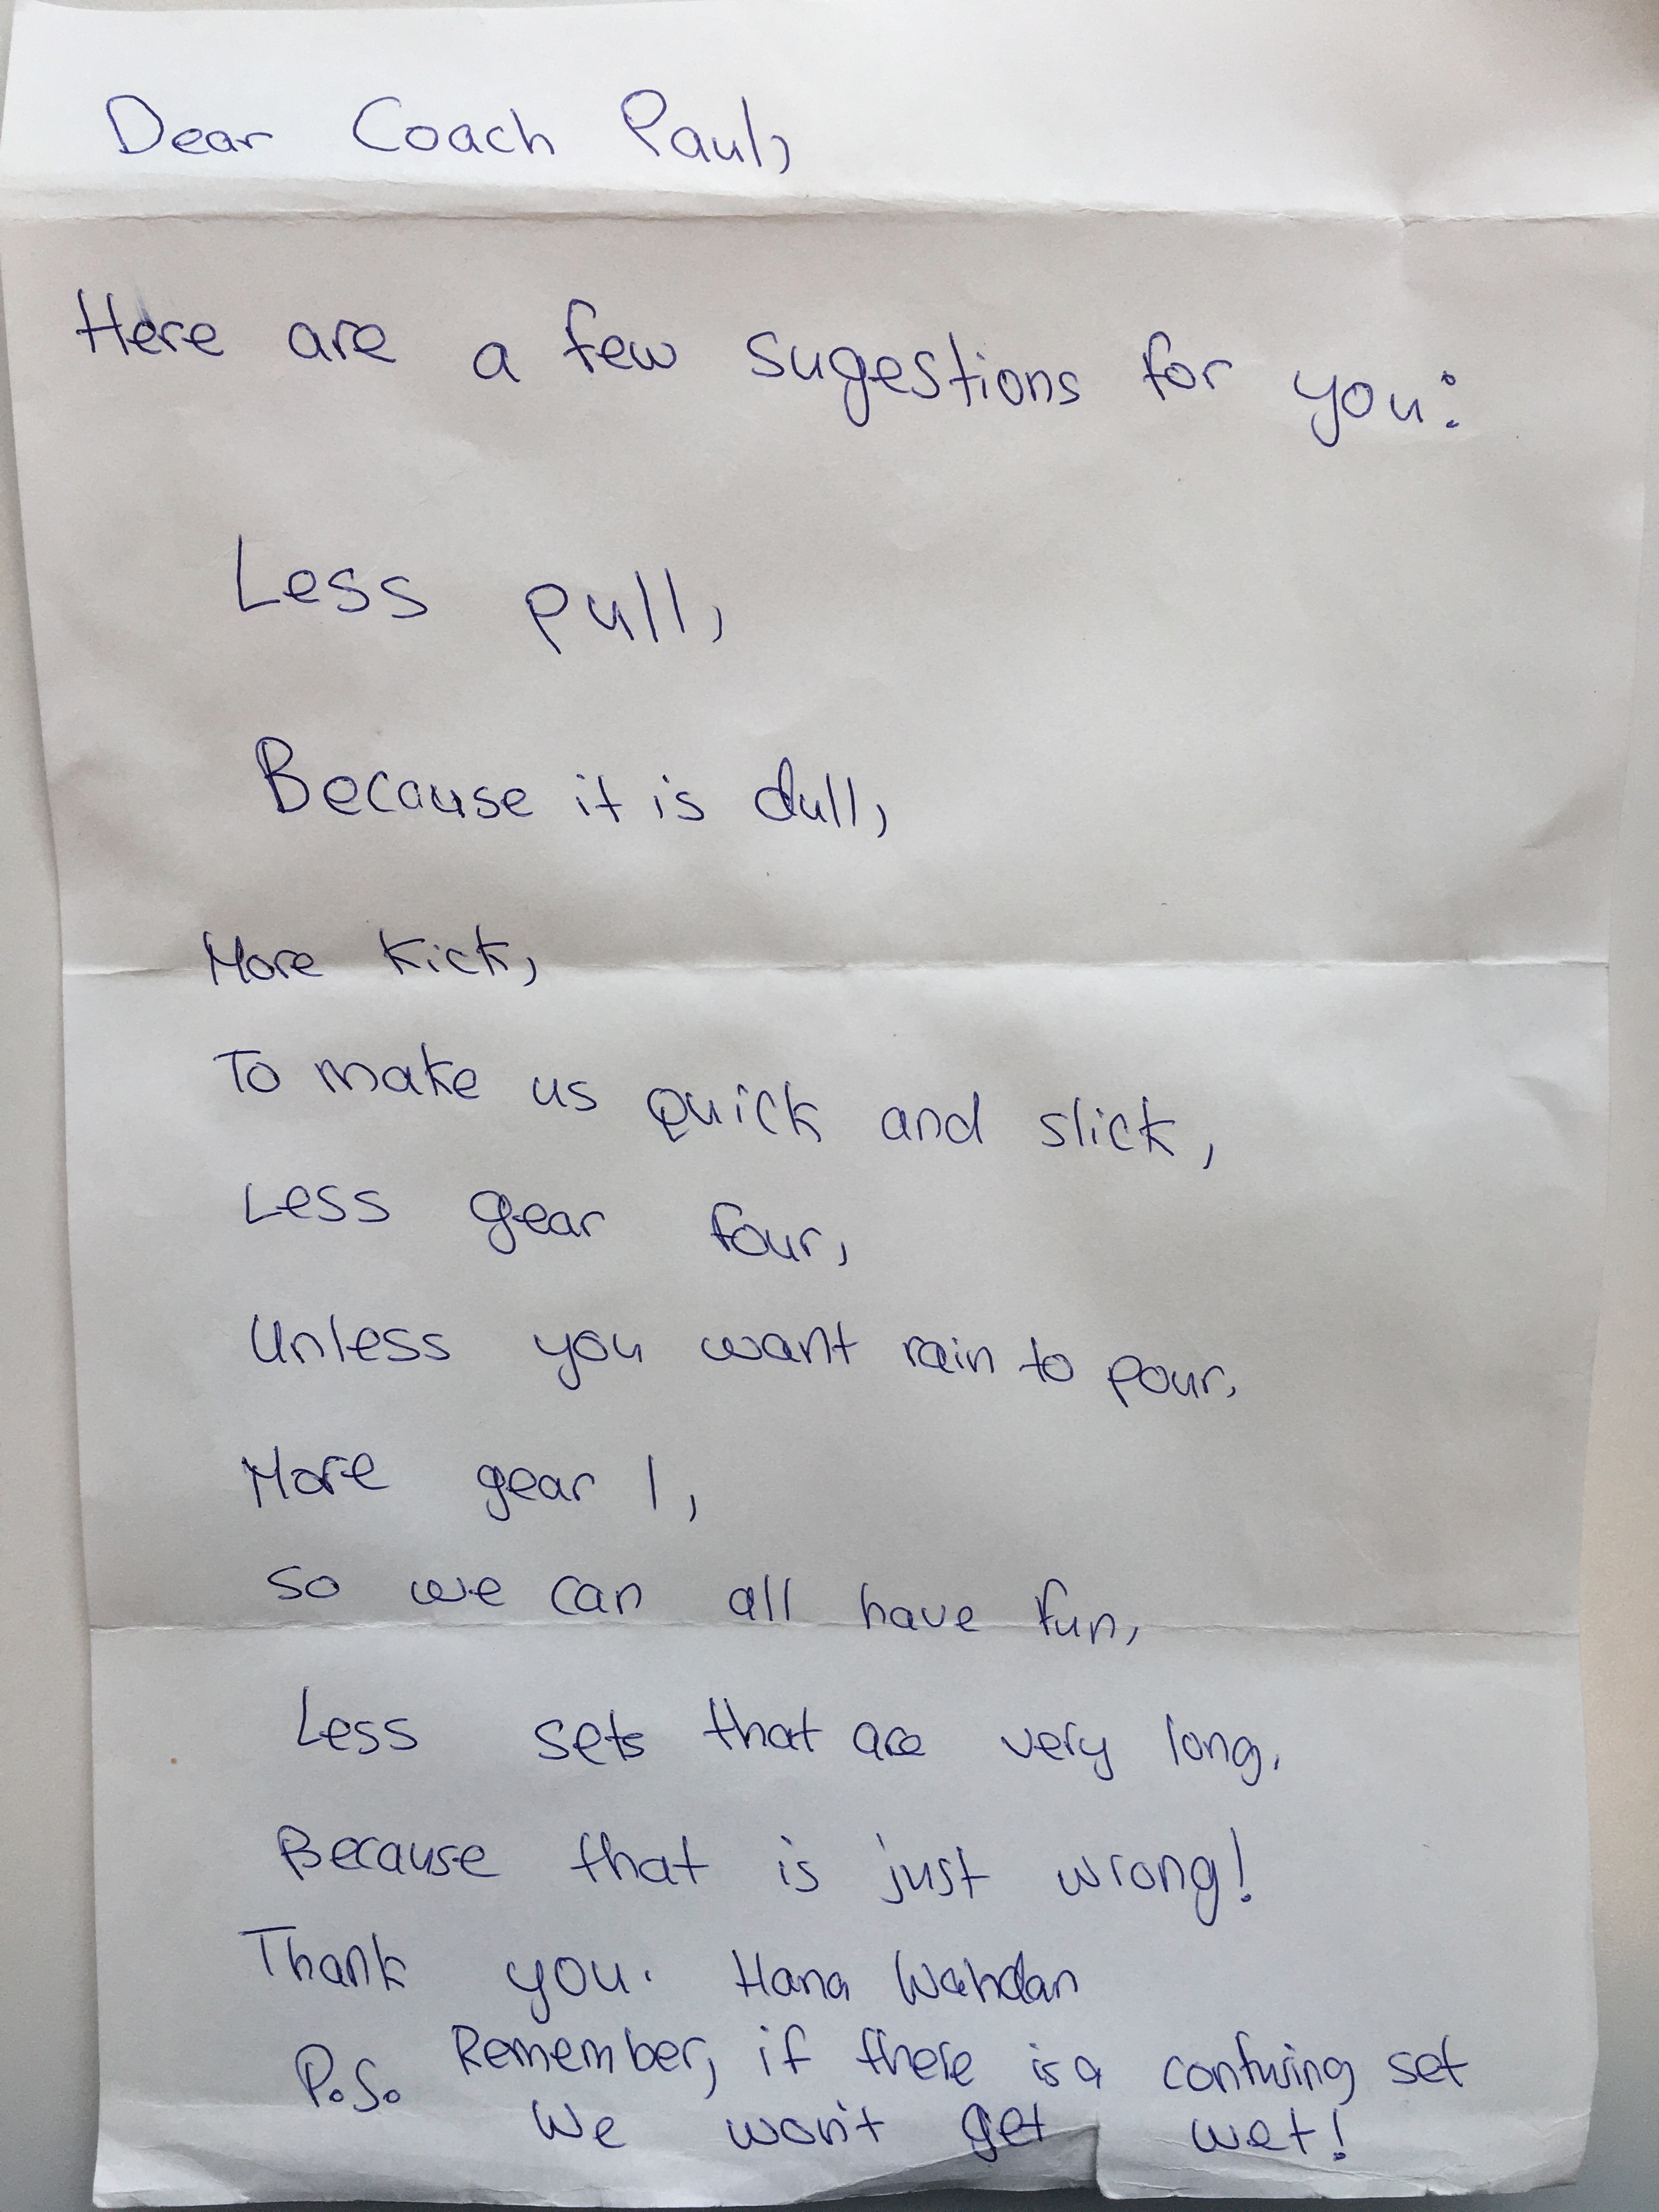 Dear Coach Paul,
Here are a few sugestions for you:
Less pull,
Because it is dull,
More kick,
To make us quick and slick,
Less gear four,
Unless you want rain to pour,
More gear 1,
so we can all have fun,
Less sets that are very long,
Because that is just wrong!
Thank you. Hana Wahdan
P.S. Remember, if there is a confusing set
We won't get wet!